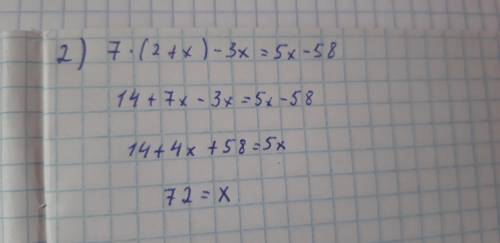 2) 7 · (2 + x) - 3x = 5x - 58
14 + 7x - 3x = 5x - 58
14 + 4x + 58 = 5x
72 = x